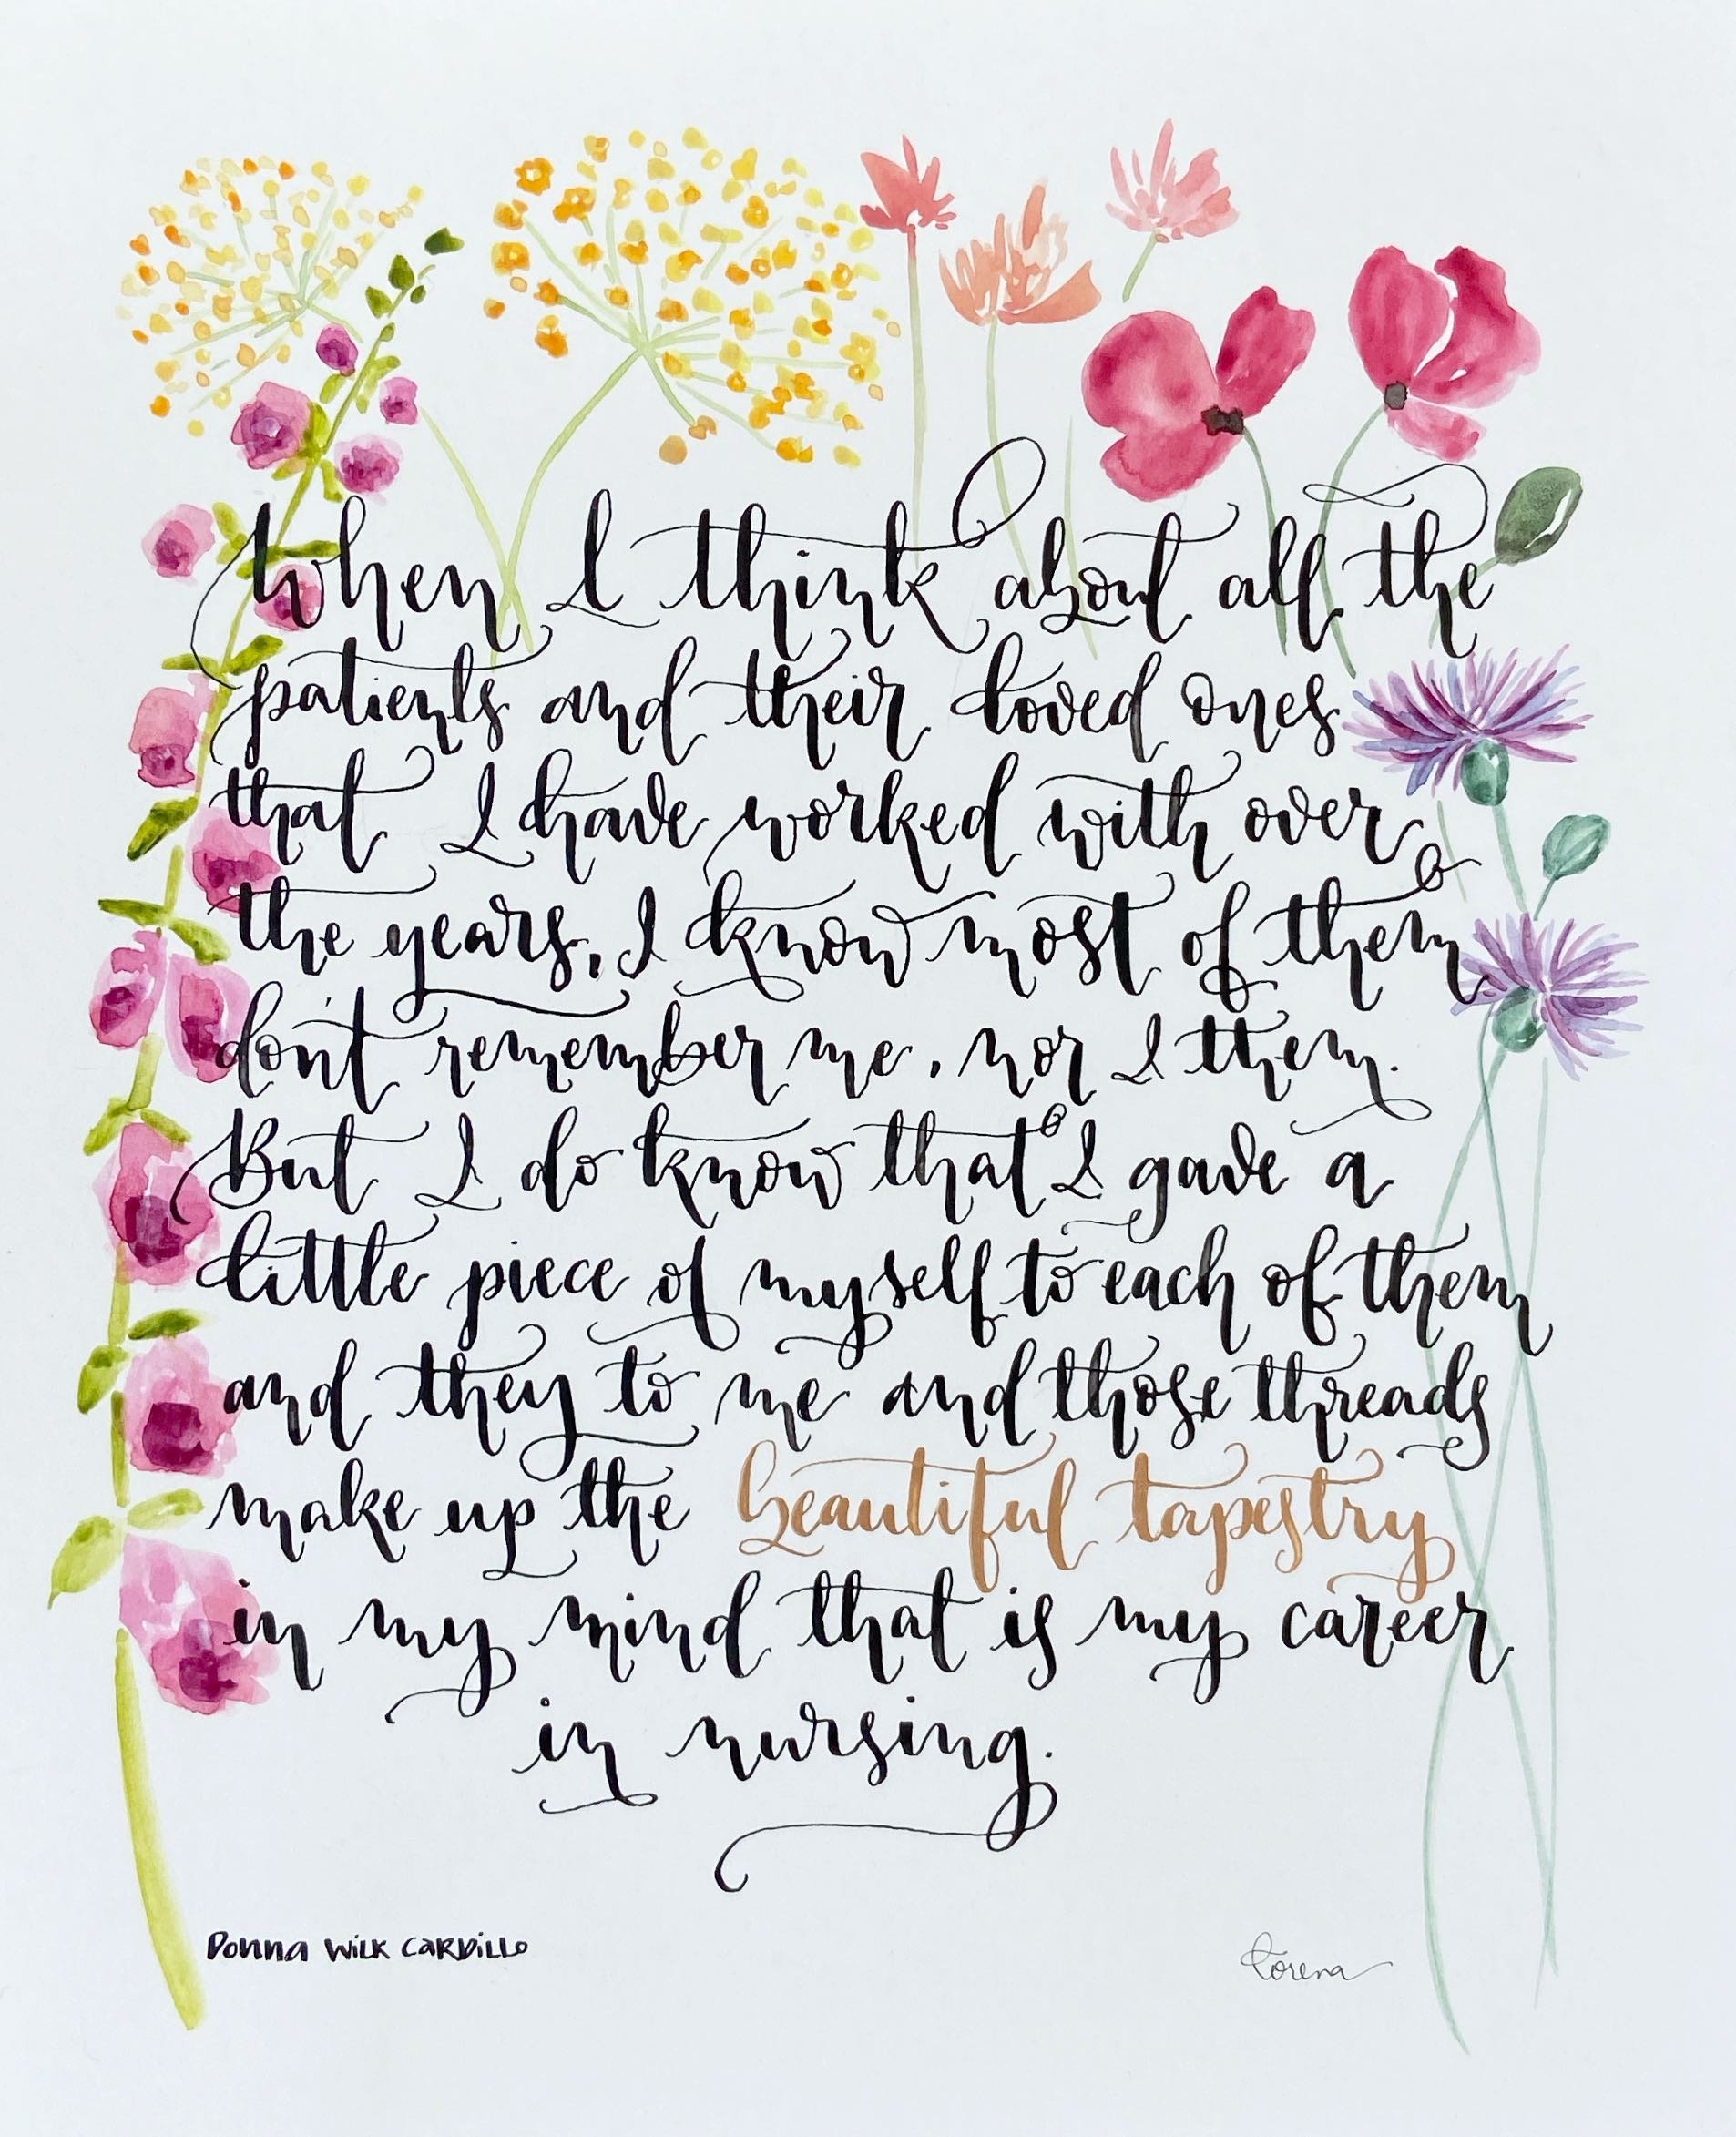 When I think about all the
patients and their loved ones
that I have worked with over
the years, I know most of them
don't remember me, nor I them.
But I do know that I gave a
little piece of myself to each of them
and they to me and those threads
make up the beautiful tapestry
in my mind that is my career
in nursing.
Donna Wilk Cardillo
Lorena